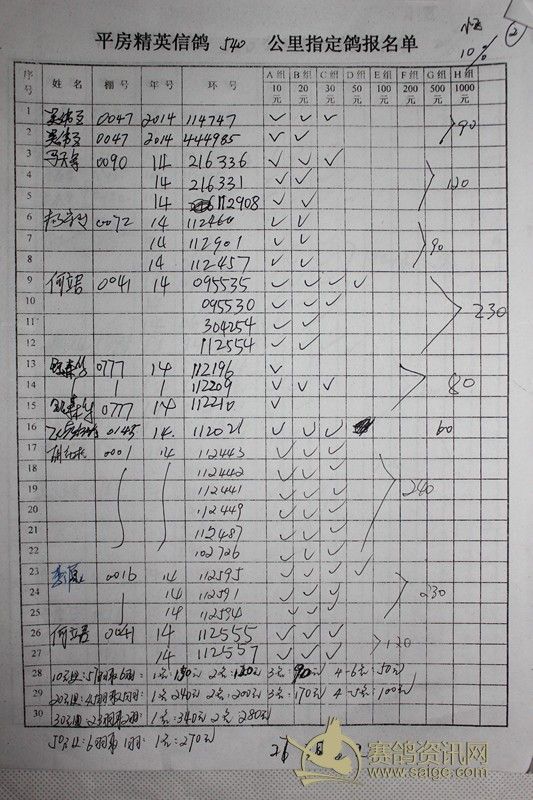 ②
10%
平房精英信鸽 540 公里指定鸽报名单
序号 姓名 棚号 年号 环号 A组10元 B组20元 C组30元 D组50元 E组100元 F组200元 G组500元 H组1000元
1 0047 2014 114747 ✓ ✓ ✓
2 0047 2014 444985 ✓ ✓ 90
3 0090 14 216336 ✓ ✓ ✓
4 14 216331 ✓ ✓ 120
5 14 112908 ✓ ✓
6 0072 14 112460 ✓ ✓
7 14 112901 ✓ ✓ 90
8 14 112457 ✓ ✓
9 0041 14 095535 ✓ ✓ ✓ ✓
10 095530 ✓ ✓ ✓ 230
11 304254 ✓ ✓
12 112554 ✓ ✓
13 0777 14 112196 ✓
14 112209 ✓ ✓ ✓ 80
15 0777 14 112210 ✓
16 0145 14. 112021 ✓ ✓ ✓ 60
17 0001 14 112443 ✓ ✓ ✓
18 112442 ✓ ✓ ✓
19 112441 ✓ ✓ ✓ 240
20 112449 ✓ ✓ ✓
21 112487 ✓ ✓ ✓
22 102726 ✓ ✓ ✓
23 0016 14 112595 ✓ ✓ ✓ ✓
24 14 112591 ✓ ✓ ✓ 230
25 14 112594 ✓ ✓ ✓
26 0041 14 112555 ✓ ✓ ✓
27 14 112557 ✓ ✓ ✓ 120
28 10元组:57羽 6羽: 1名:150元 2名:120元 3名:90元 4-6名:50元
29 20元组:45羽 5羽: 1名240元 2名:200元 3名:170元 4-5名:100元
30 30元组:23羽 2羽: 1名:340元 2名:280元
50元组:6羽 1羽: 1名:270元
26
赛鸽资讯网
www.saige.com